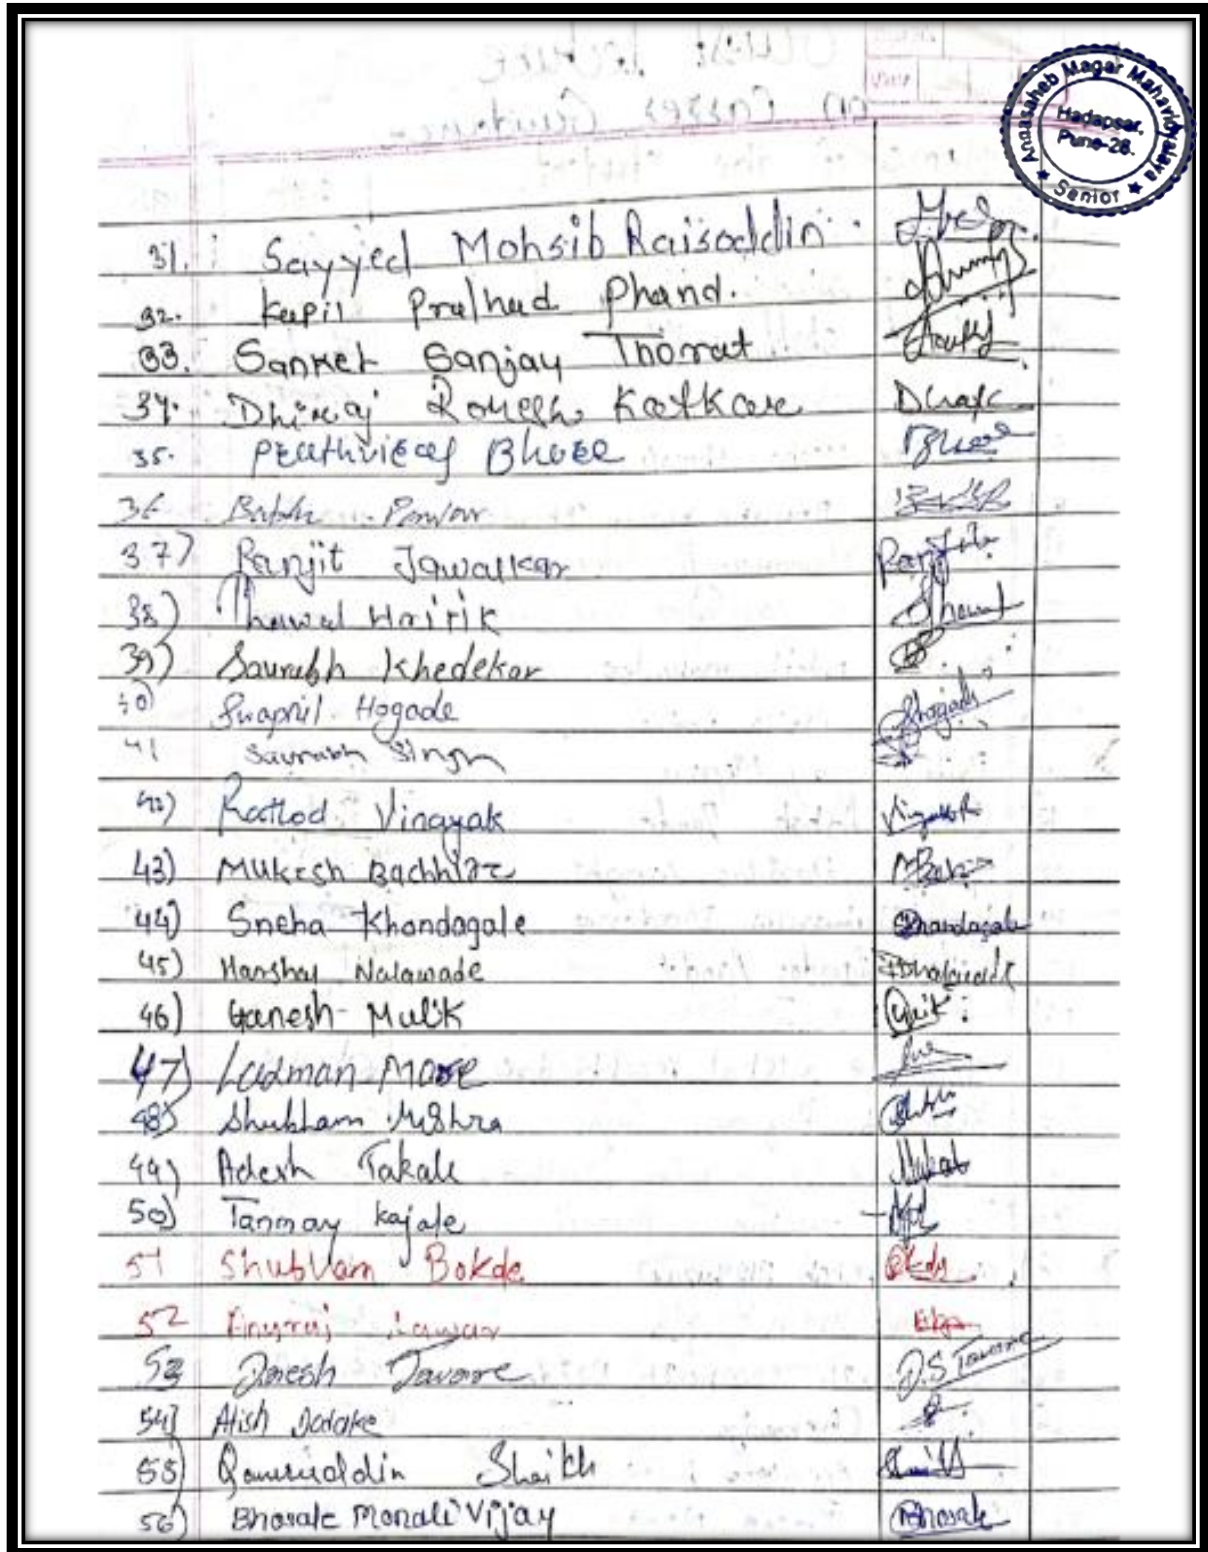 Annasaheb Magar Mahavidyalaya
Hadapsar,
Pune-28.
Senior
31. Sayyed Mohsib Raisoddin
32. Kapil Pralhad Phand.
33. Sanket Sanjay Thorat
34. Dhiraj Romesh Katkare
35. Bhore
36 Pawar
37) Ranjit Jawalkar Ranjit
38) Thawal Hritik
39) Saurabh Khedekar
40) Swapnil Hogade
41 Saurabh Singh
42) Rathod Vinayak
43) Mukesh
44) Sneha Khandagale Khandagale
45) Harshay Nalawade
46) Ganesh Mulik
47) Laxman More
48) Shubham Mishra
49) Adesh Takale
50) Tanmay Kajale
51 Shubham Bokde
52
53 Dnesh Tavare D.S Tavare
54) Atish
55) Qamruddin Shaikh
56) Bhosale Monali Vijay Bhosale